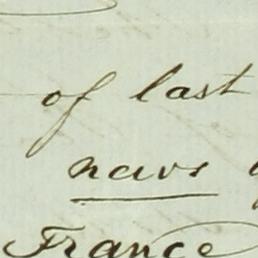 of last
news
France